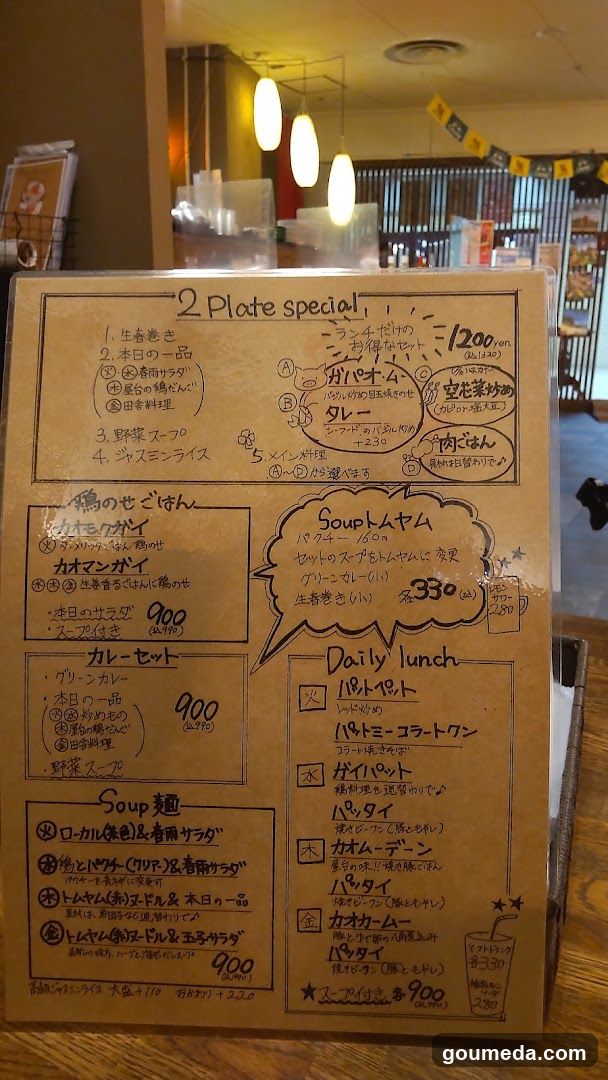 2 Plate special
1. 生春巻き
2. 本日の一品
火・水 春雨サラダ
木 屋台の鶏だんご
金 田舎料理
3. 野菜スープ
4. ジャスミンライス
5. メイン料理
A〜Dから選べます
ランチだけの
お得なセット
1200 yen
(込1320)
A ガパオ・ムー
バジル炒め目玉焼きのせ
B タレー
シーフードのバジル炒め
+230
C
空芯菜炒め
D 肉ごはん
具材は日替わりで♪
鶏のせごはん
カオモクガイ
火 ターメリックごはん 鶏のせ
カオマンガイ
水 木 金 生姜香るごはんに鶏のせ
・本日のサラダ
・スープ付き
900
(込990)
Soupトムヤム
パクチー 160円
セットのスープをトムヤムに変更
グリーンカレー(小)
生春巻き(小) 各330(込)
レモン
サワー
280
カレーセット
・グリーンカレー
・本日の一品
火 水 炒めもの
木 屋台の鶏だんご
金 田舎料理
・野菜スープ
900
(込990)
Soup 麺
火 ローカル(茶色)&春雨サラダ
水 鶏とパクチー(クリアー)&春雨サラダ
木 トムヤム(赤)ヌードル & 本日の一品
金 トムヤム(赤)ヌードル & 玉子サラダ
900
(込990)
ジャスミンライス 大盛+110 おかわり+220
Daily lunch
火 パットペット
レッド炒め
パットミーコラートクン
コラート焼きそば
水 ガイパット
鶏料理を週替わりで♪
パッタイ
焼きビーフン(豚ともやし)
木 カオムーデーン
屋台の味!!焼き豚ごはん
パッタイ
焼きビーフン(豚ともやし)
金 カオカームー
豚とゆで卵の八角煮込み
パッタイ
焼きビーフン(豚ともやし)
★スープ付き 各900
(込990)
ソフトドリンク
各330
280
goumeda.com